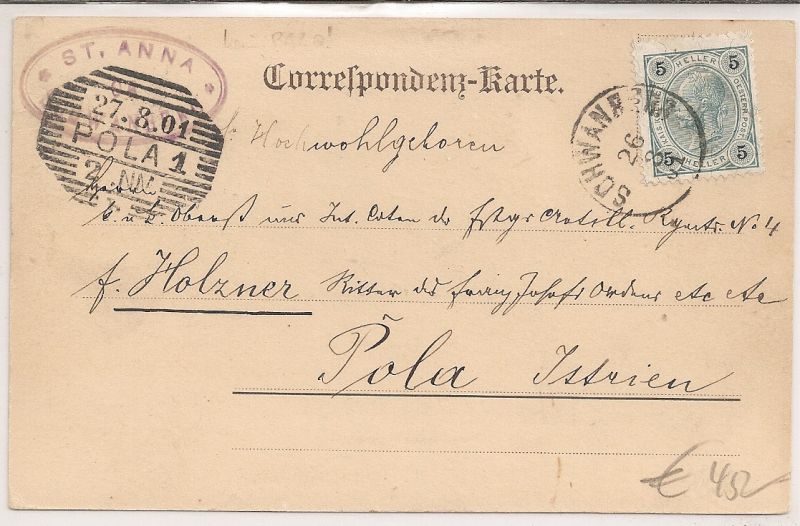 bei POLA!
* ST. ANNA *
Correspondenz-Karte.
5 HELLER 5
5 HELLER 5
SCHWANBERG
26 8
27.8.01
POLA 1
2 NM
Hochwohlgeboren
Herrn
k. u. k. Oberst und Int. Coten des Fstgs Artill. Rgmts. No 4
f. Holzner Ritter des Franz Josefs Ordens etc etc
Pola Istrien
€ 45